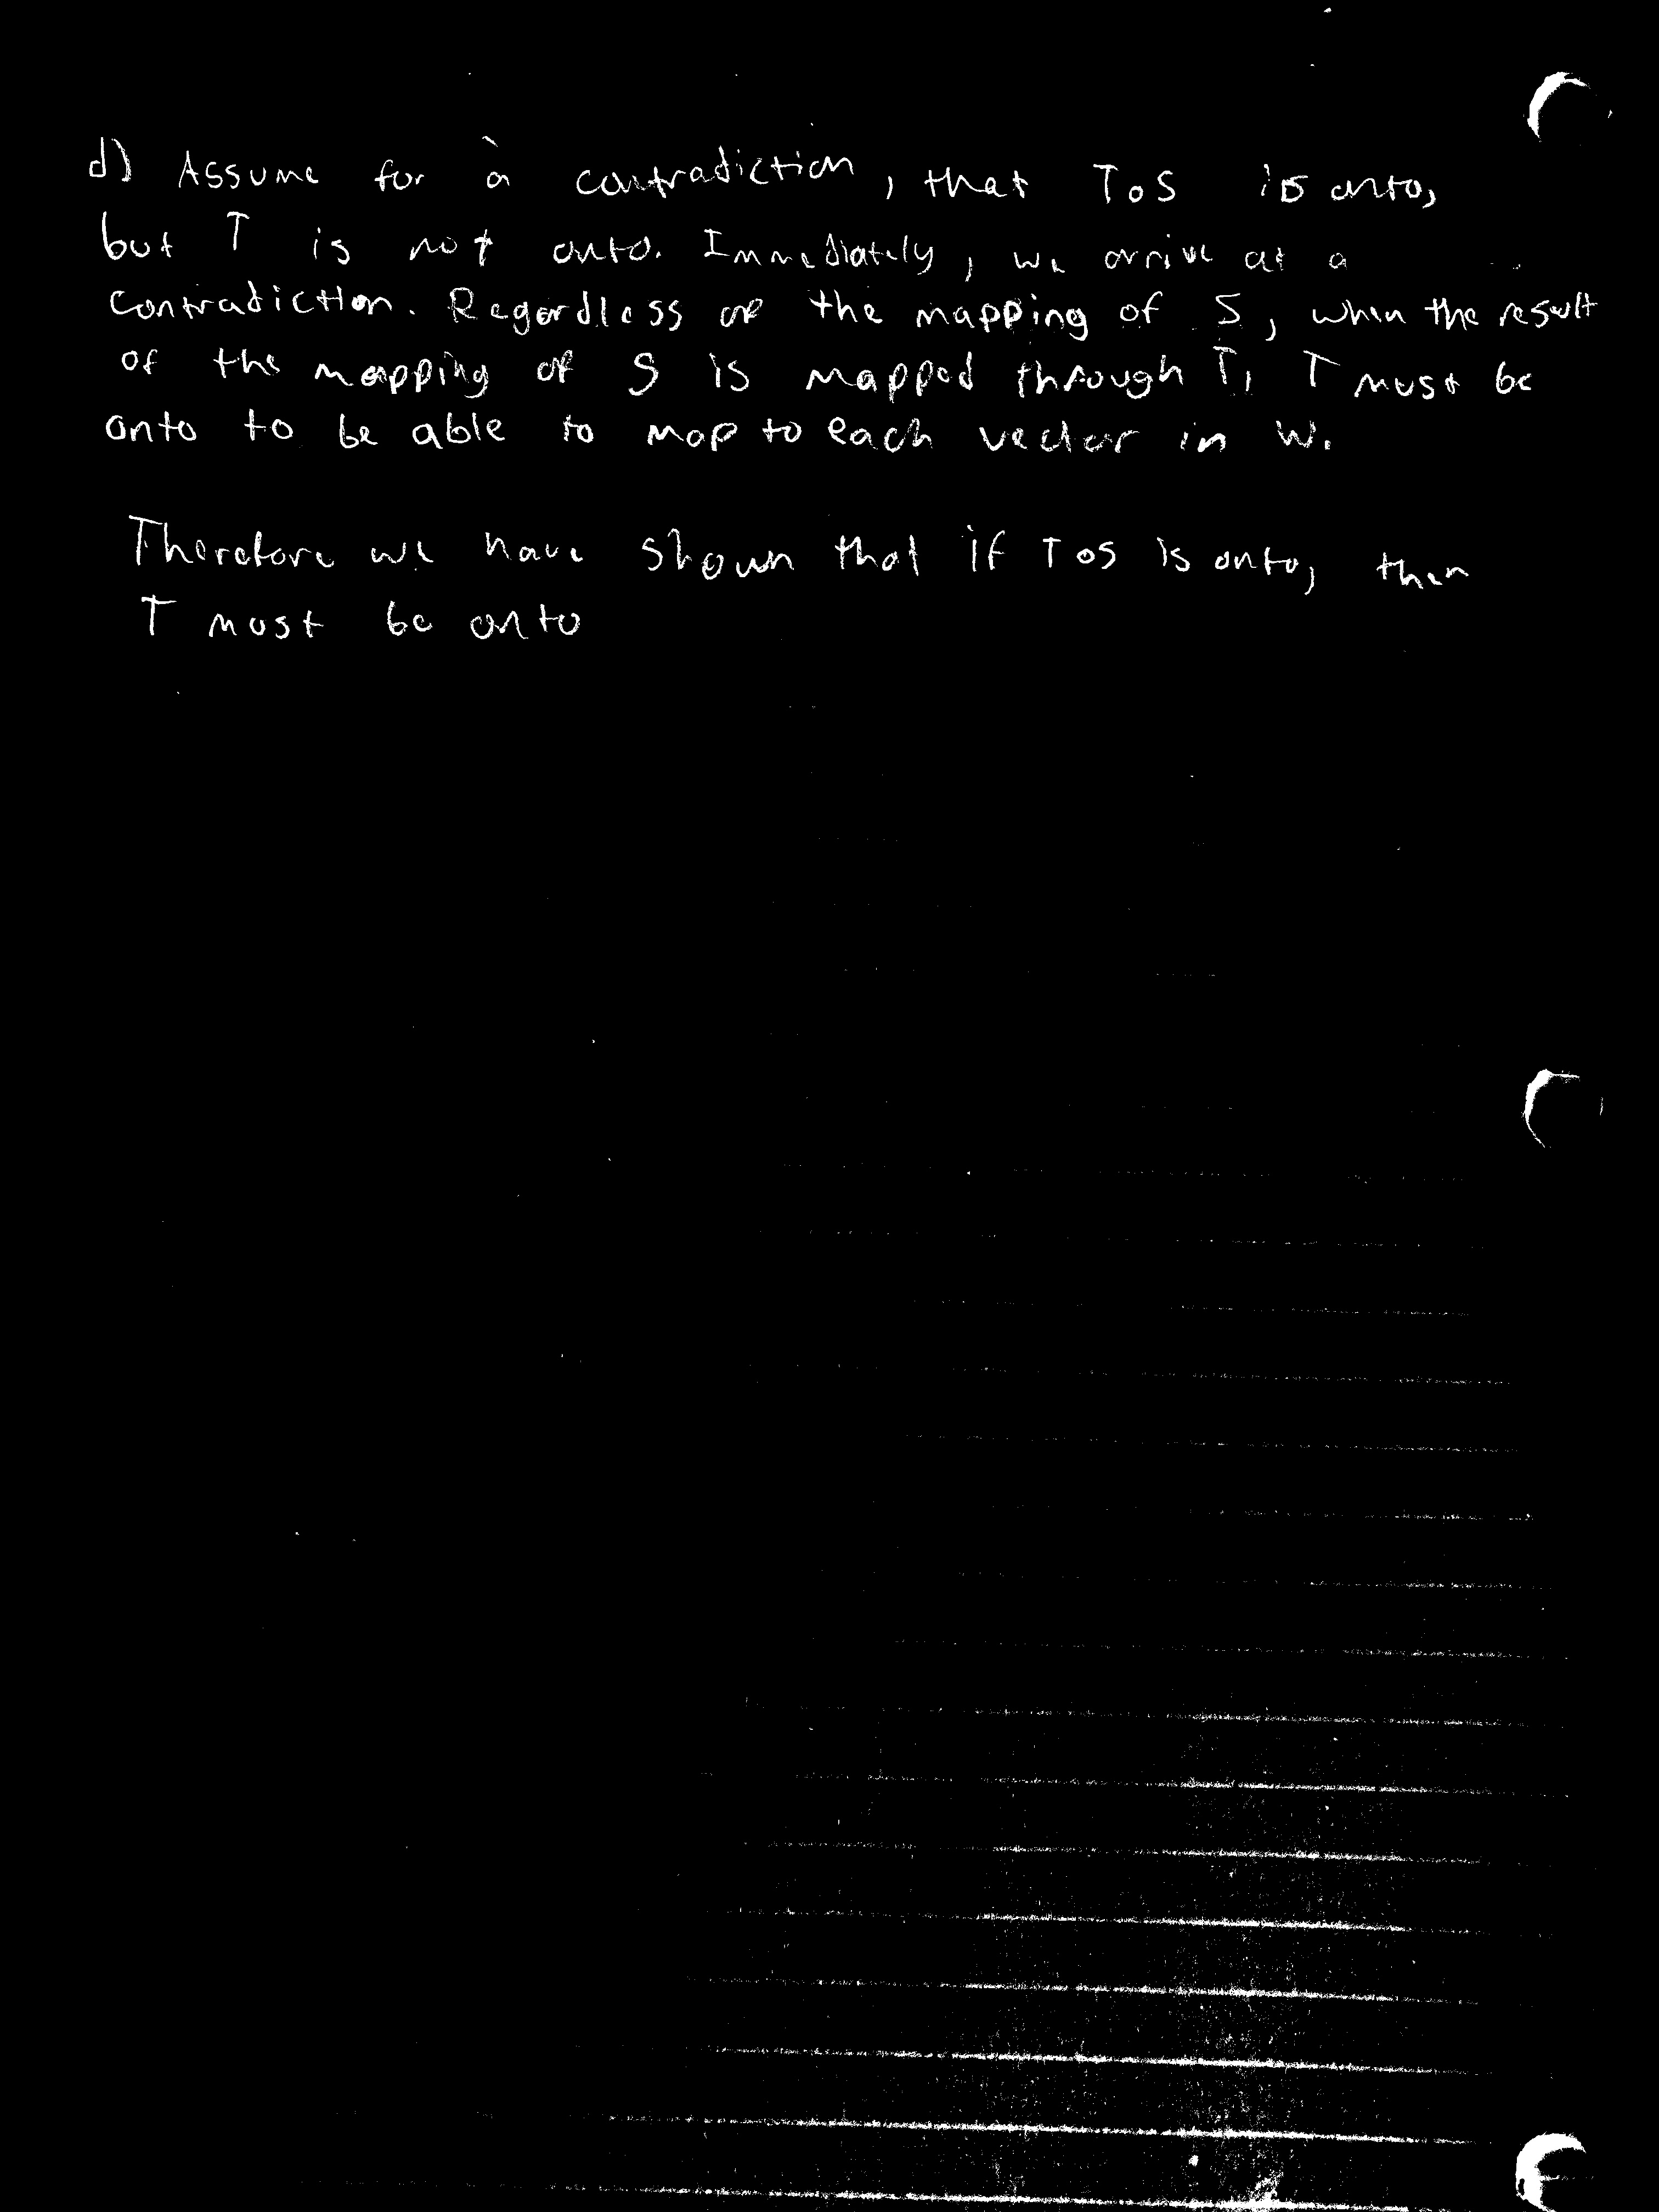 d) Assume for a contradiction, that T∘S is onto,
but T is not onto. Immediately, we arrive at a
contradiction. Regardless of the mapping of S, when the result
of the mapping of S is mapped through T, T must be
onto to be able to map to each vector in W.
Therefore we have shown that if T∘S is onto, then
T must be onto